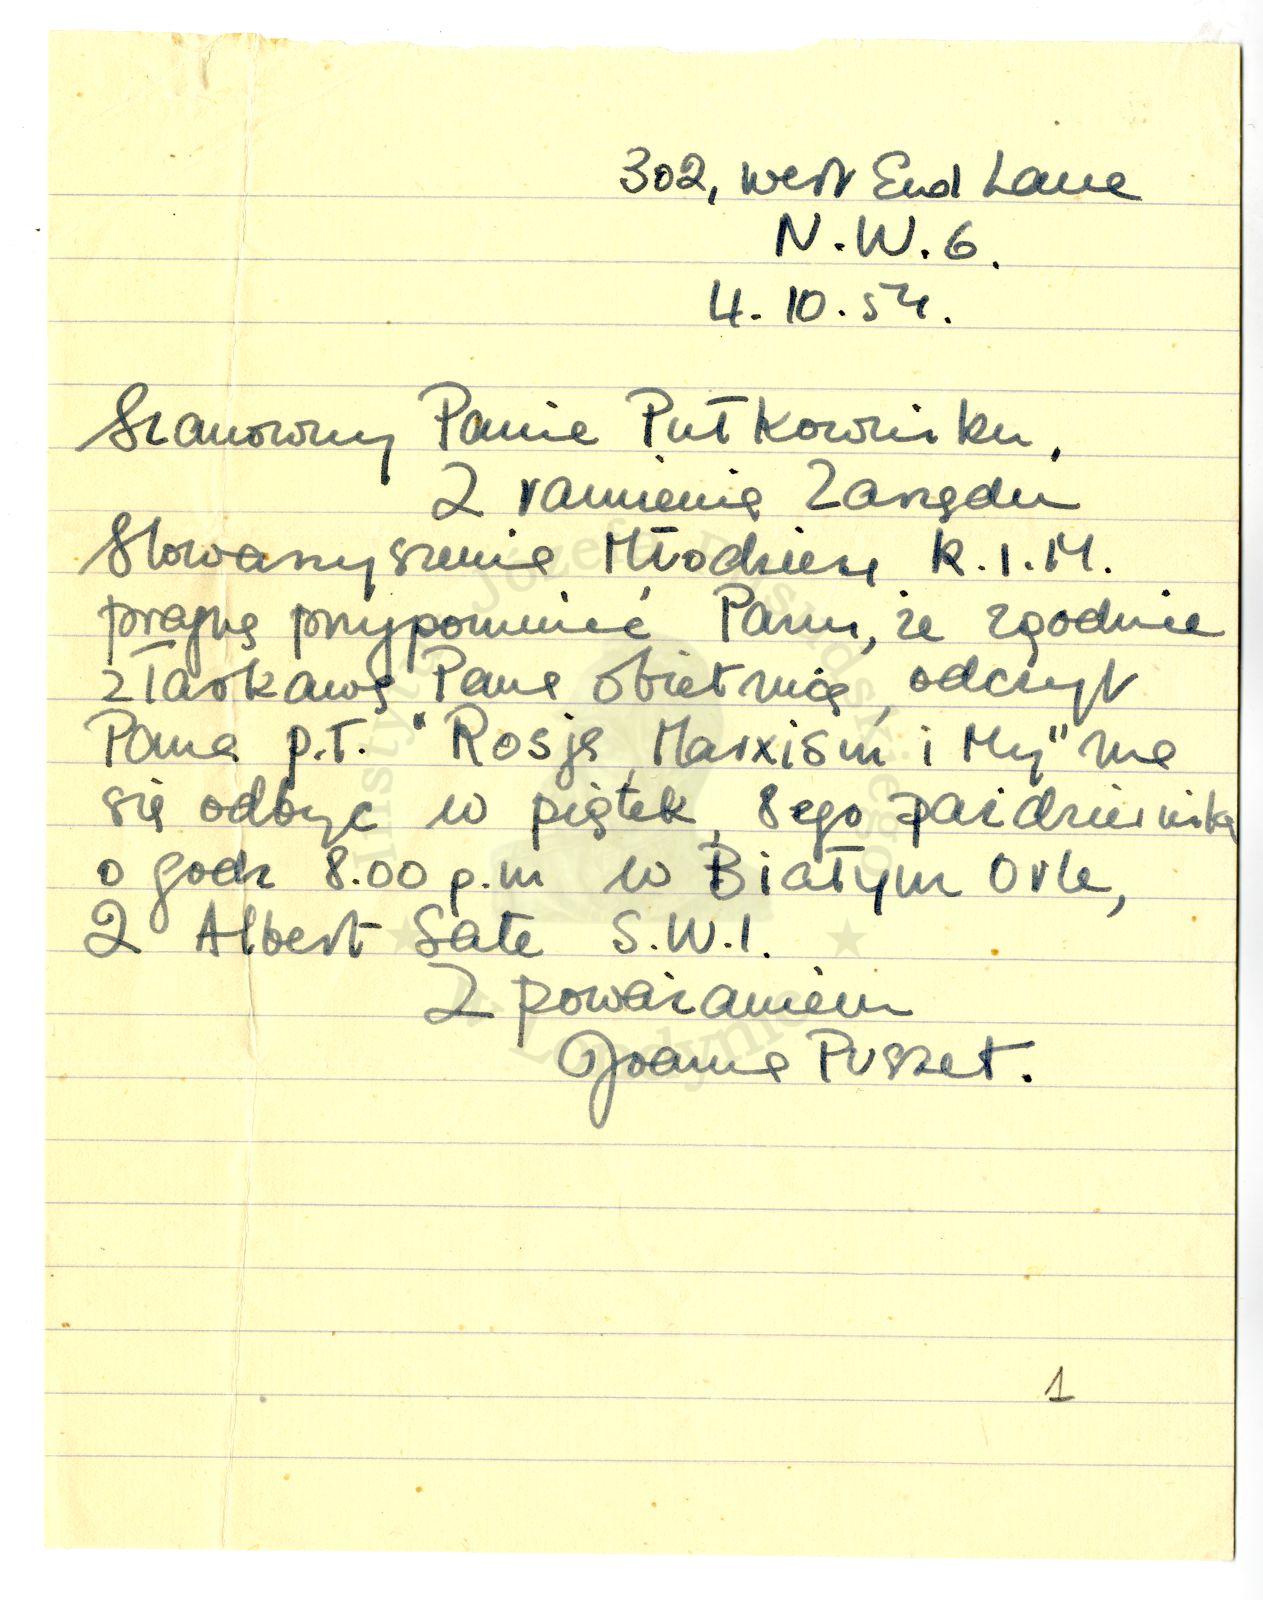 302, West End Lane
N.W.6.
4.10.54.
Szanowny Panie Pułkowniku,
Z ramienia Zarządu
Stowarzyszenia Młodzieży K.I.M.
pragnę przypomnieć Panu, że zgodnie
z łaskawą Pana obietnicą, odczyt
Pana p.t. "Rosja, Marxism i My" ma
się odbyć w piątek, 8ego Października
o godz 8.00 p.m w Białym Orle,
2 Albert Gate S.W.1.
Z poważaniem
Joanna Puszet.
1
Instytut Józefa Piłsudskiego
w Londynie